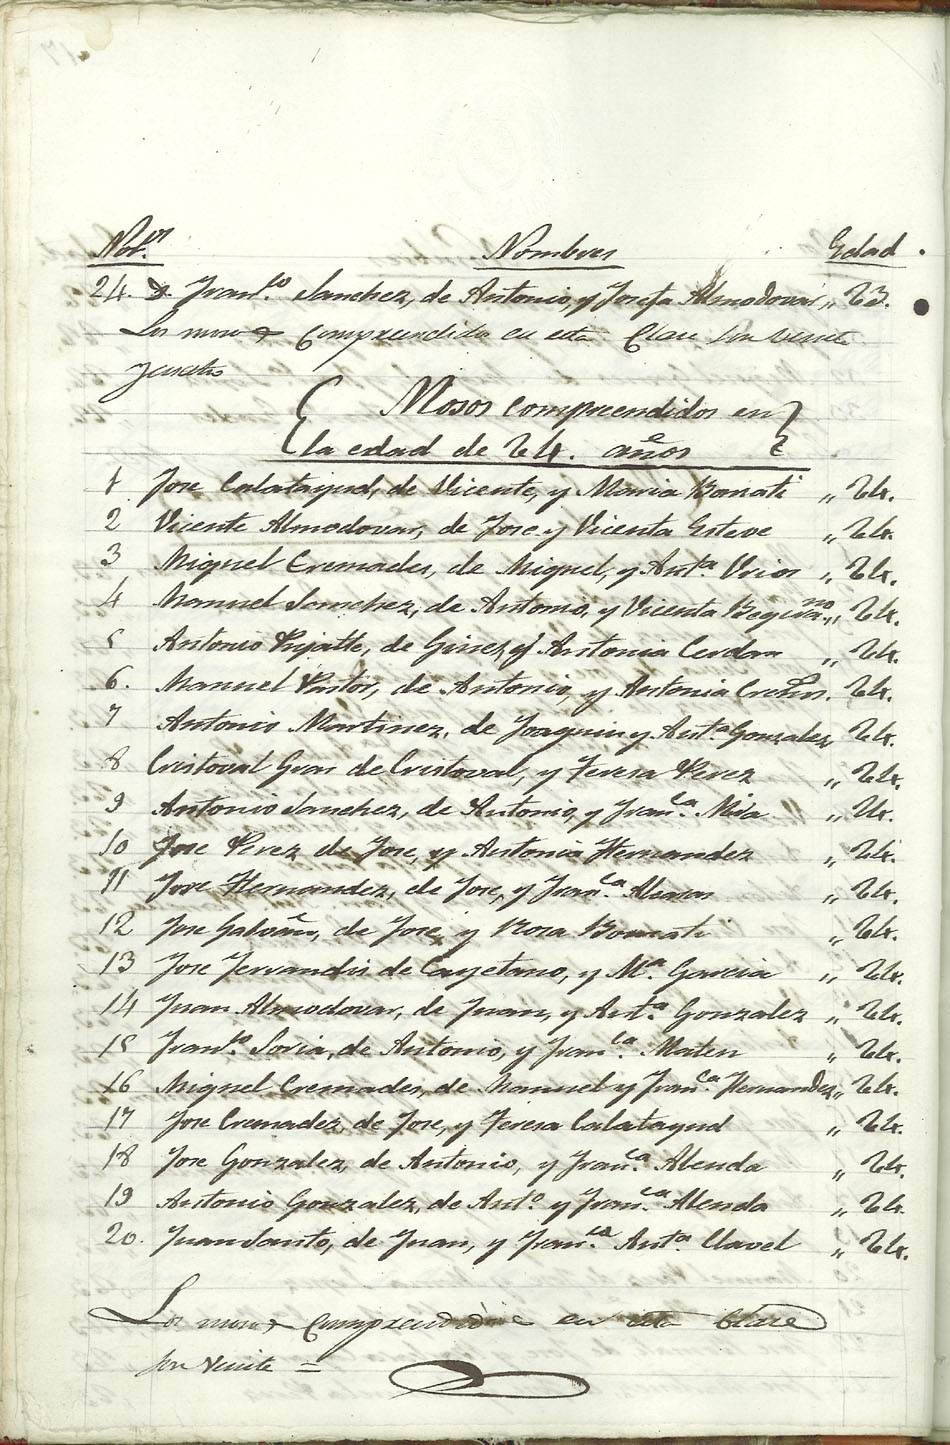 Nos. Nombres Edad
24. D. Franco. Sanchez, de Antonio, y Josefa Almodovar,, 23.
Los mosos comprendidos en esta Clase son veinte
y cuatro
Mosos compreendidos en
la edad de 24. años
1 Jose Calatayud, de Vicente, y Maria Bonati ,, 24.
2 Vicente Almodovar, de Jose y Vicenta Esteve ,, 24.
3 Miguel Cremades, de Miguel, y Anta. Vrios ,, 24.
4 Manuel Sanchez, de Antonio, y Vicenta ,, 24.
5 Antonio de Gines, y Antonia Cerdan ,, 24.
6. Manuel Pastor, de Antonio, y Antonia 24.
7 Antonio Martinez, de Joaquin y Anta. Gonzalez, 24.
8 Cristoval Gran de Cristoval, y Teresa Perez ,, 24.
9 Antonio Sanchez, de Antonio, y Franca. Mira ,, 24.
10 Jose Perez de Jose, y Antonia Hernandez ,, 24.
11 Jose Hernandez, de Jose, y Franca. ,, 24.
12 Jose Galvañ, de Jose, y Rosa Bonati ,, 24.
13 Jose Fervandis de Cayetano, y Ma. Garcia ,, 24.
14 Juan Almodovar, de Juan, y Anta. Gonzalez ,, 24.
15 Franco. Soria, de Antonio, y Franca. ,, 24.
16 Miguel Cremades, de Manuel y Franca. Hernandez,, 24.
17 Jose Cremadez de Jose, y Teresa Calatayud ,, 24.
18 Jose Gonzalez, de Antonio, y Franca. Abenda ,, 24.
19 Antonio Gonzalez, de Anto. y Franca. Abenda ,, 24.
20. Juan Santo, de Juan, y Franca. Anta. Clavel ,, 24.
Los mosos comprendidos en esta Clase
son veinte =